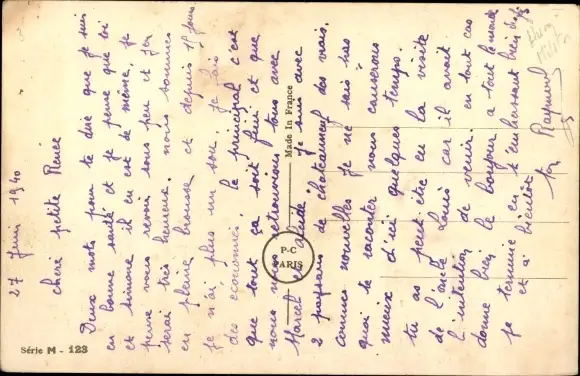 27 Juin 1940
Cheré petite Renée
Deux mots pour te dire que je suis
en bonne santé et je pense que toi
et Simone il en est de même, je
pense vous revoir sous peu et j'en
serai très heureux. nous sommes
en pleine brousse et depuis 15 jours
je n'ai plus un sou je fais
des économies. le principal c'est
que tout ça soit fini et que
nous nous retrouvions tous avec
Marcel la santé. je suis avec
2 paysans de chateauneuf des vrais.
comme nouvelles je ne sais pas
quoi te raconter nous causerons
mieux d'ici quelques temps.
tu as peut être eu la visite
de l'oncle Louis car il avait
l'intention de venir. en tout cas
donne bien le bonjour a tout le monde
je termine en t'embrassant bien fort
et à bientôt.
ton Raymond
Made In France
P-C
PARIS
Série M - 123